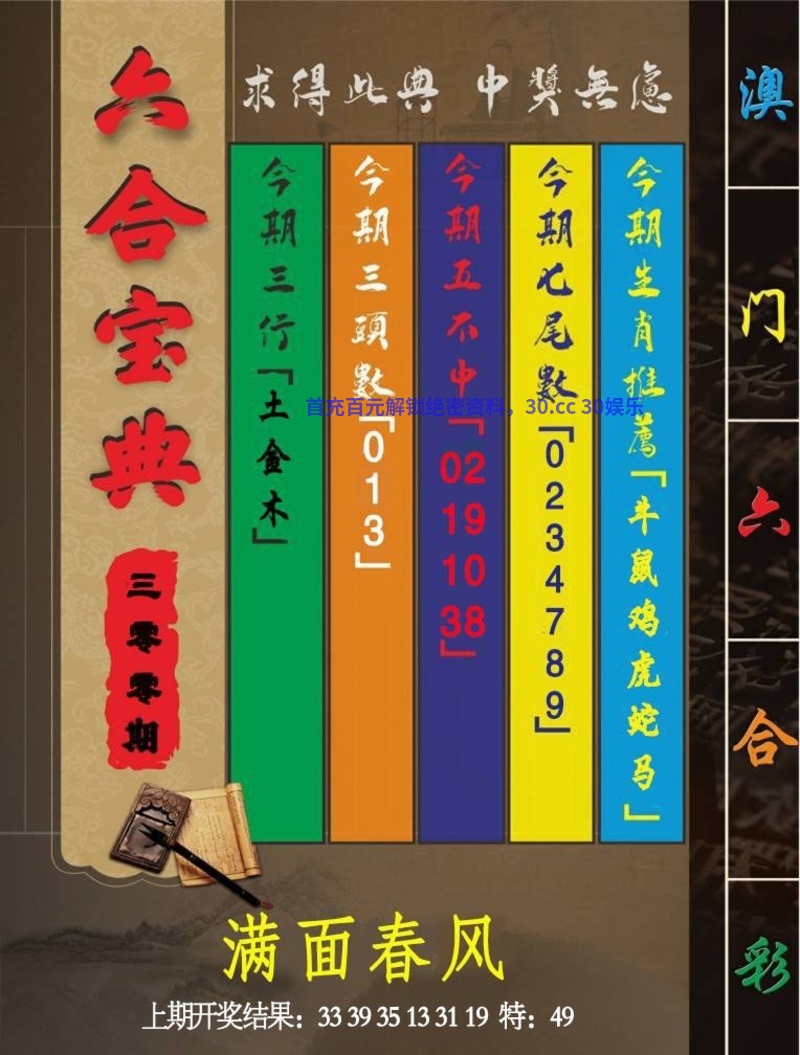 六合宝典
三零零期
求得此典 中獎無慮
今期三行「土金木」
今期三頭數「013」
今期五不中「02 19 10 38」
今期七尾數「0234789」
今期生肖推薦「牛鼠鸡虎蛇马」
首充百元解锁绝密资料，30.cc 30娱乐
澳门六合彩
满面春风
上期开奖结果：33 39 35 13 31 19 特：49